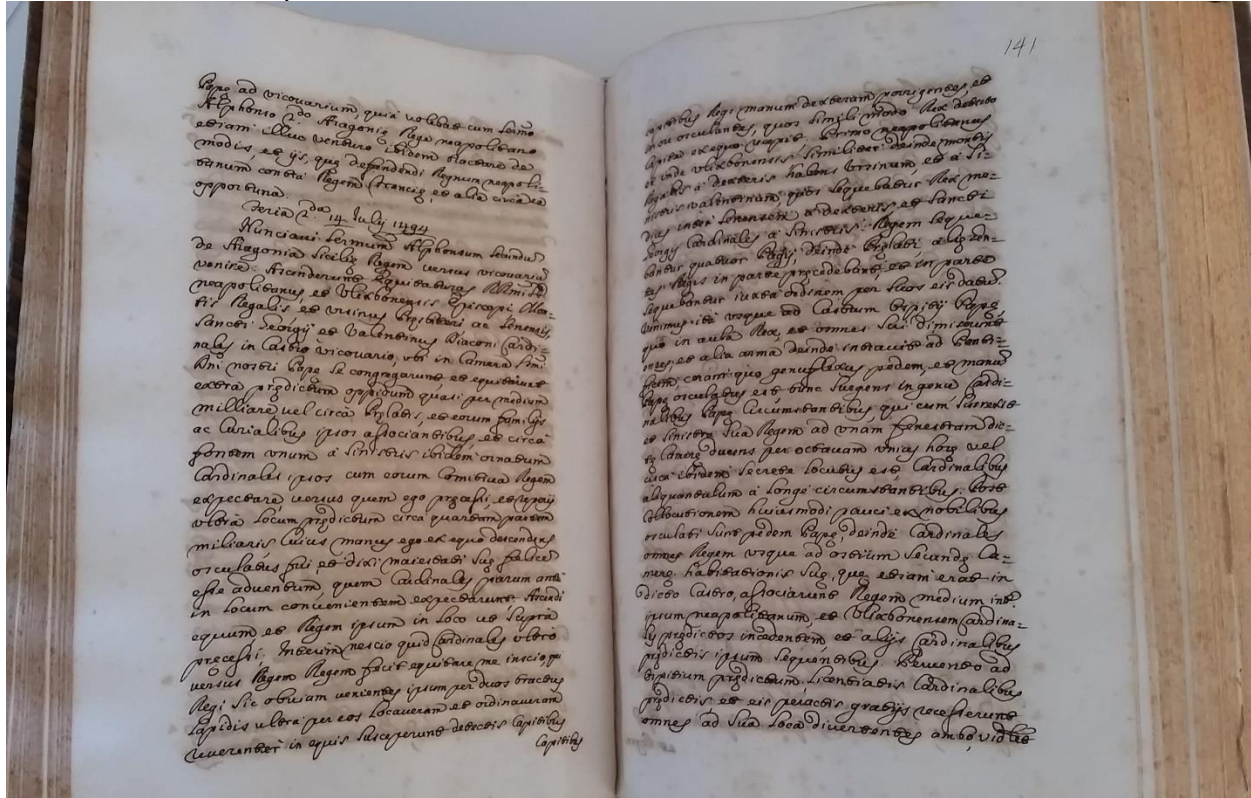 Papę ad vicovarium, quia volebat cum sermo
Alphonso 2.do Aragonię Rege neapolitano
etiam illuc venturo ibidem tractare de
modis, et ijs, quę defendendi Regnum neapoli=
tanum contra Regem Francię, et alia circa ea
opportuna.
Feria 2.da 14 July 1494
Nunciavi sermum Alphonsum secundum
de Aragonia Sicilię Regem versus vicovarium
venire. Ascenderunt equitaturas
neapolitanus, et Vlixbonensis Episcopi, Mon=
tis Regalis, et Ursinus Presbiteri ac Senensis,
Sancti Georgij et Valentinus Diaconi Cardi=
nales in Castro vicovario, ubi in Camera Smi
Dni nostri Papę se congregarunt, et equitarunt
extra prędictum oppidum quasi per medium
milliare vel circa Pręlatis, et eorum familijs
ac Curialibus ipsos associantibus, et circa
fontem unum à sinistris ibidem ornatum
Cardinales ipsos cum eorum Comitiva Regem
expectare versus quem ego pręcessi, et
ultra locum prędictum circa quartam partem
miliaris cuius manus ego ex equo descendens
osculatus fui, et dixi maiestati suę felicem
esse adventum, quem Cardinales parum ante
in locum convenientem expectarunt. Ascendi
equum et Regem ipsum in loco ut supra
precessi. Interim nescio quid Cardinales ultro
versus Regem Regem fecit equitare me inscio,
Regi sic obviam venientes ipsum per duos tractus
lapidis ultra per eos locaveram et ordinaveram
reverenter in equis susceperunt detectis Capitibus
Capitibus
141
capitibus Regi manum dexteram porrigentes, et
non osculantes, quos simili modo Rex detecto
Capite ex equo cepit. Primo neapolitanus
et inde Vlixbonensis, similiter deinde montis
Regalis à dexteris habens Ursinum, et à si=
nistris valentinum, quos sequebatur Rex me=
dius inter senensem à dexteris et Sancti
Georgij Cardinales à sinistris. Regem seque=
bantur quatuor Pagij, deinde Pręlati, aliq
Regis in parte pręcedebant, et in parte
sequebantur iuxta ordinem per suos eis datum.
venimus ibi usque ad Castrum hospitij Papę
quo in aula Rex, et omnes sui dimiserunt
enses, et alia arma deinde intravit ad Ponti=
ficem, coram quo genuflexus pedem, et manum
Papę osculatus est et tunc surgens in genu Cardi=
nalibus Papę Circumstantibus, qui cum surrexit
et sinistra sua Regem ad unam fenestram dic=
tę Camerę ducens per octavam unius horę vel
circa ibidem secrete locutus est, Cardinalibus
aliquantulum à longe circumstantibus. Post
Collocutionem huiusmodi pauci ex nobilibus
osculati sunt pedem Papę, deinde Cardinales
omnes Regem usque ad ostium secundę Ca=
merę habitationis suę, quę etiam erat in
dicto Castro, associarunt Regem medium inter
ipsum neapolitanum, et Vlixbonensem Cardina=
les prędictos incedentem, et alijs Cardinalibus
prędictis ipsum sequentibus. Pervento ad
hospitium prędictum, licentiatis Cardinalibus
prędictis et eis peractis gratijs recesserunt
omnes ad sua loca divertentes ambo